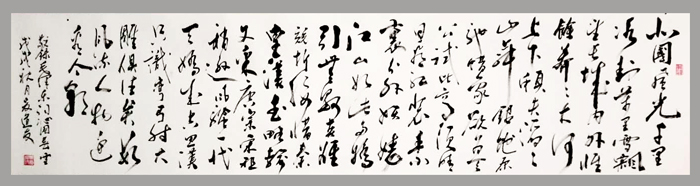 北國風光千里
冰封萬里雪飄
望長城內外惟
餘莽莽大河
上下頓失滔滔
山舞銀蛇原
馳蠟象欲與天
公試比高須晴
日看紅裝素
裹分外妖嬈
江山如此多嬌
引無數英雄
競折腰惜秦
皇漢武略輸
文采唐宗宋祖
稍遜風騷一代
天驕成吉思漢
只識彎弓射大
雕俱往矣數
風流人物還
看今朝
敬錄毛澤東詞沁園春雪
戊戌秋月